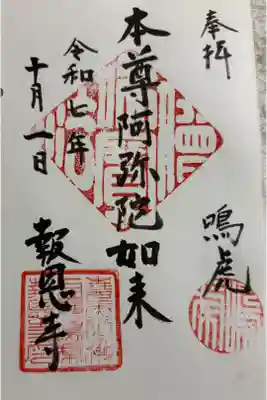 奉拝
鳴虎
本尊阿弥陀如来
令和七年
十月一日
報恩寺